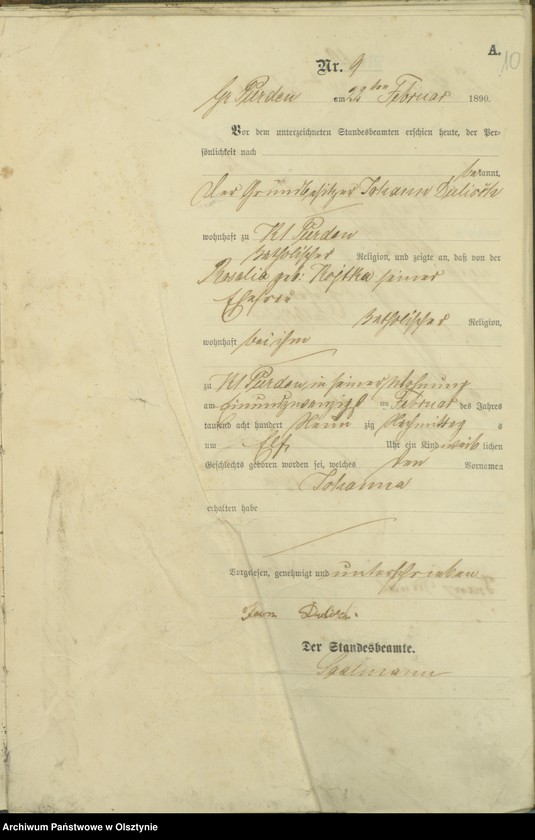 A.
10
Nr. 9
Gr Purden am 22ten Februar 1890.
Vor dem unterzeichneten Standesbeamten erschien heute, der Per-
sönlichkeit nach
bekannt,
der Grundbesitzer Johann
wohnhaft zu Kl Purden
katholischer Religion, und zeigte an, daß von der
Rosalia geb: seiner
Ehefrau
katholischer Religion,
wohnhaft bei ihm
zu Kl Purden, in seiner Wohnung
am einundzwanzigst en Februar des Jahres
tausend acht hundert Neun zig Nachmittag s
um Elf Uhr ein Kind weib lichen
Geschlechts geboren worden sei, welches den Vornamen
Johanna
erhalten habe
Vorgelesen, genehmigt und unterschrieben
Der Standesbeamte.
Archiwum Państwowe w Olsztynie